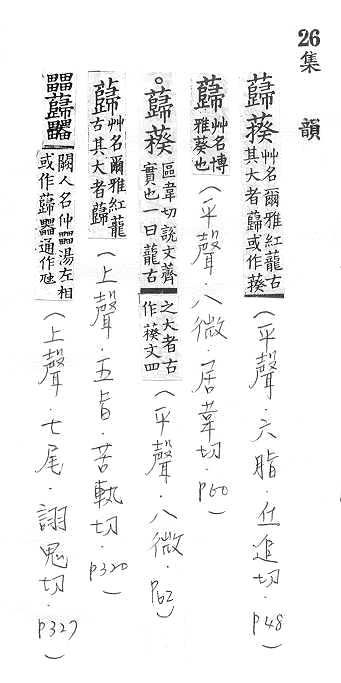 26 集韻
蘬 艸名爾雅紅蘢古其大者蘬或作（平聲．六脂．丘追切．p48）
蘬 艸名博雅葵也（平聲．八微．居韋切．p60）
。蘬 區韋切說文薺實也一曰蘢古之大者古作文四（平聲．八微．p62）
蘬 艸名爾雅紅蘢古其大者蘬（上聲．五旨．苦軌切．p320）
闕人名仲湯左相或作通作虺（上聲．七尾．詡鬼切．p327）